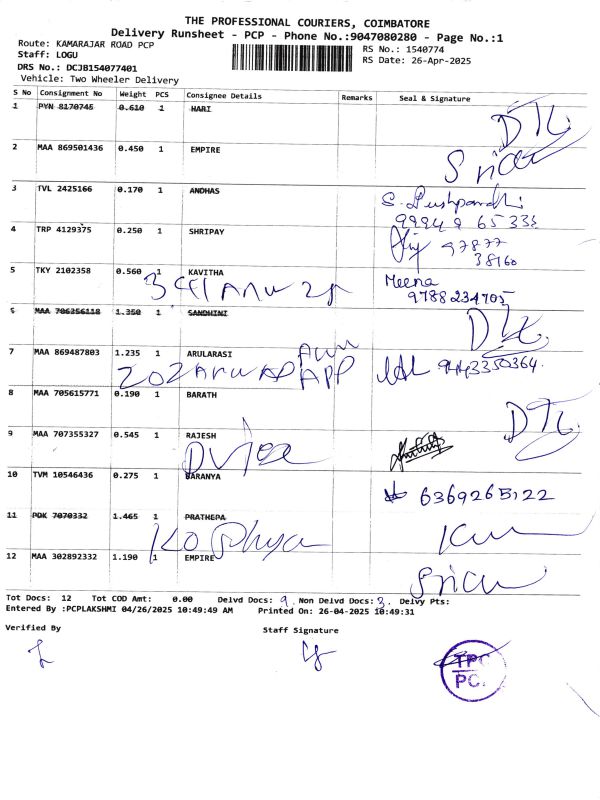 THE PROFESSIONAL COURIERS, COIMBATORE
Delivery Runsheet - PCP - Phone No.:9047080280 - Page No.:1
Route: KAMARAJAR ROAD PCP
Staff: LOGU
DRS No.: DCJB154077401
Vehicle: Two Wheeler Delivery
RS No.: 1540774
RS Date: 26-Apr-2025
S No Consignment No Weight PCS Consignee Details Remarks Seal & Signature
1 PYN 8170745 0.610 1 HARI
2 MAA 869501436 0.450 1 EMPIRE
3 TVL 2425166 0.170 1 ANDHAS
4 TRP 4129375 0.250 1 SHRIPAY
97877
38160
5 TKY 2102358 0.560 1 KAVITHA Meena
9788234705
6 MAA 706356118 1.350 1 SANDHINI
7 MAA 869487803 1.235 1 ARULARASI
APP 9443350364
8 MAA 705615771 0.190 1 BARATH
9 MAA 707355327 0.545 1 RAJESH
10 TVM 10546436 0.275 1 SARANYA
6369265122
11 PDK 7070332 1.465 1 PRATHEPA
12 MAA 302892332 1.190 1 EMPIRE
Tot Docs: 12 Tot COD Amt: 0.00 Delvd Docs: 9 Non Delvd Docs: 3 Delvy Pts:
Entered By :PCPLAKSHMI 04/26/2025 10:49:49 AM Printed On: 26-04-2025 10:49:31
Verified By Staff Signature
TPC